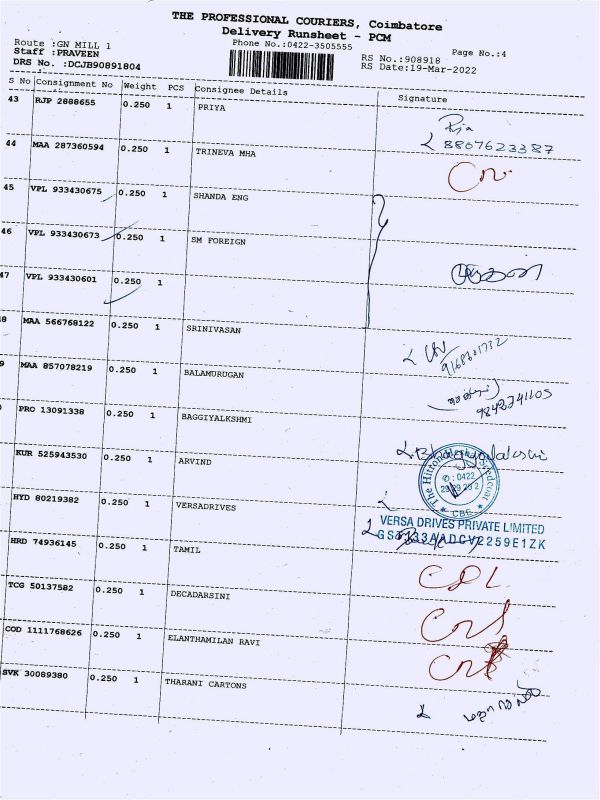 THE PROFESSIONAL COURIERS, Coimbatore
Delivery Runsheet - PCM
Route :GN MILL 1 Phone No.:0422-3505555 Page No.:4
Staff :PRAVEEN RS No.:908918
DRS No. :DCJB90891804 RS Date:19-Mar-2022
S No Consignment No Weight PCS Consignee Details Signature
43 RJP 2888655 0.250 1 PRIYA
8807623387
44 MAA 287360594 0.250 1 TRINEVA MHA
45 VPL 933430675 0.250 1 SHANDA ENG
46 VPL 933430673 0.250 1 SM FOREIGN
47 VPL 933430601 0.250 1
8 MAA 566768122 0.250 1 SRINIVASAN
9 MAA 857078219 0.250 1 BALAMURUGAN
PRO 13091338 0.250 1 BAGGIYALKSHMI
KUR 525943530 0.250 1 ARVIND
HYD 80219382 0.250 1 VERSADRIVES
VERSA DRIVES PRIVATE LIMITED
HRD 74936145 0.250 1 TAMIL
TCG 50137582 0.250 1 DECADARSINI
COD 1111768626 0.250 1 ELANTHAMILAN RAVI
SVK 30089380 0.250 1 THARANI CARTONS